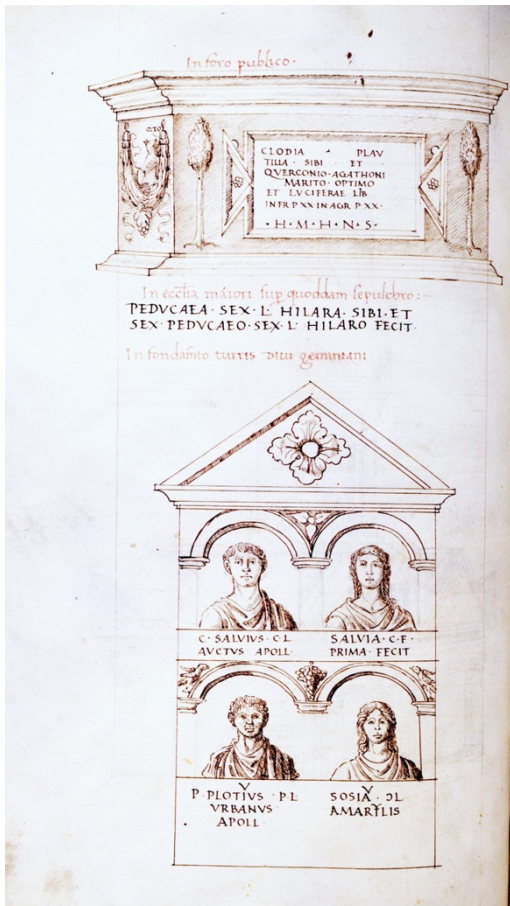 In foro publico·
CLODIA · PLAV
TILLA · SIBI · ET
QVERCONIO · AGATHONI
MARITO · OPTIMO
ET LVCIFERAE LIB
IN FR P XX IN AGR P XX ·
· H · M · H · N · S ·
In eccl̄ia maiori sup̄ quoddam sepulchro:~
PEDVCAEA · SEX · L · HILARA · SIBI · ET
SEX · PEDVCAEO · SEX · L · HILARO FECIT ·
In fondam̄to turris Diui geminiani
C · SALVIVS · C · L
AVCTVS APOLL ·
SALVIA · C · F ·
PRIMA · FECIT
V
P · PLOTIVS · P · L
VRBANVS
APOLL ·
V
SOSIA · ƆL
AMARYLIS